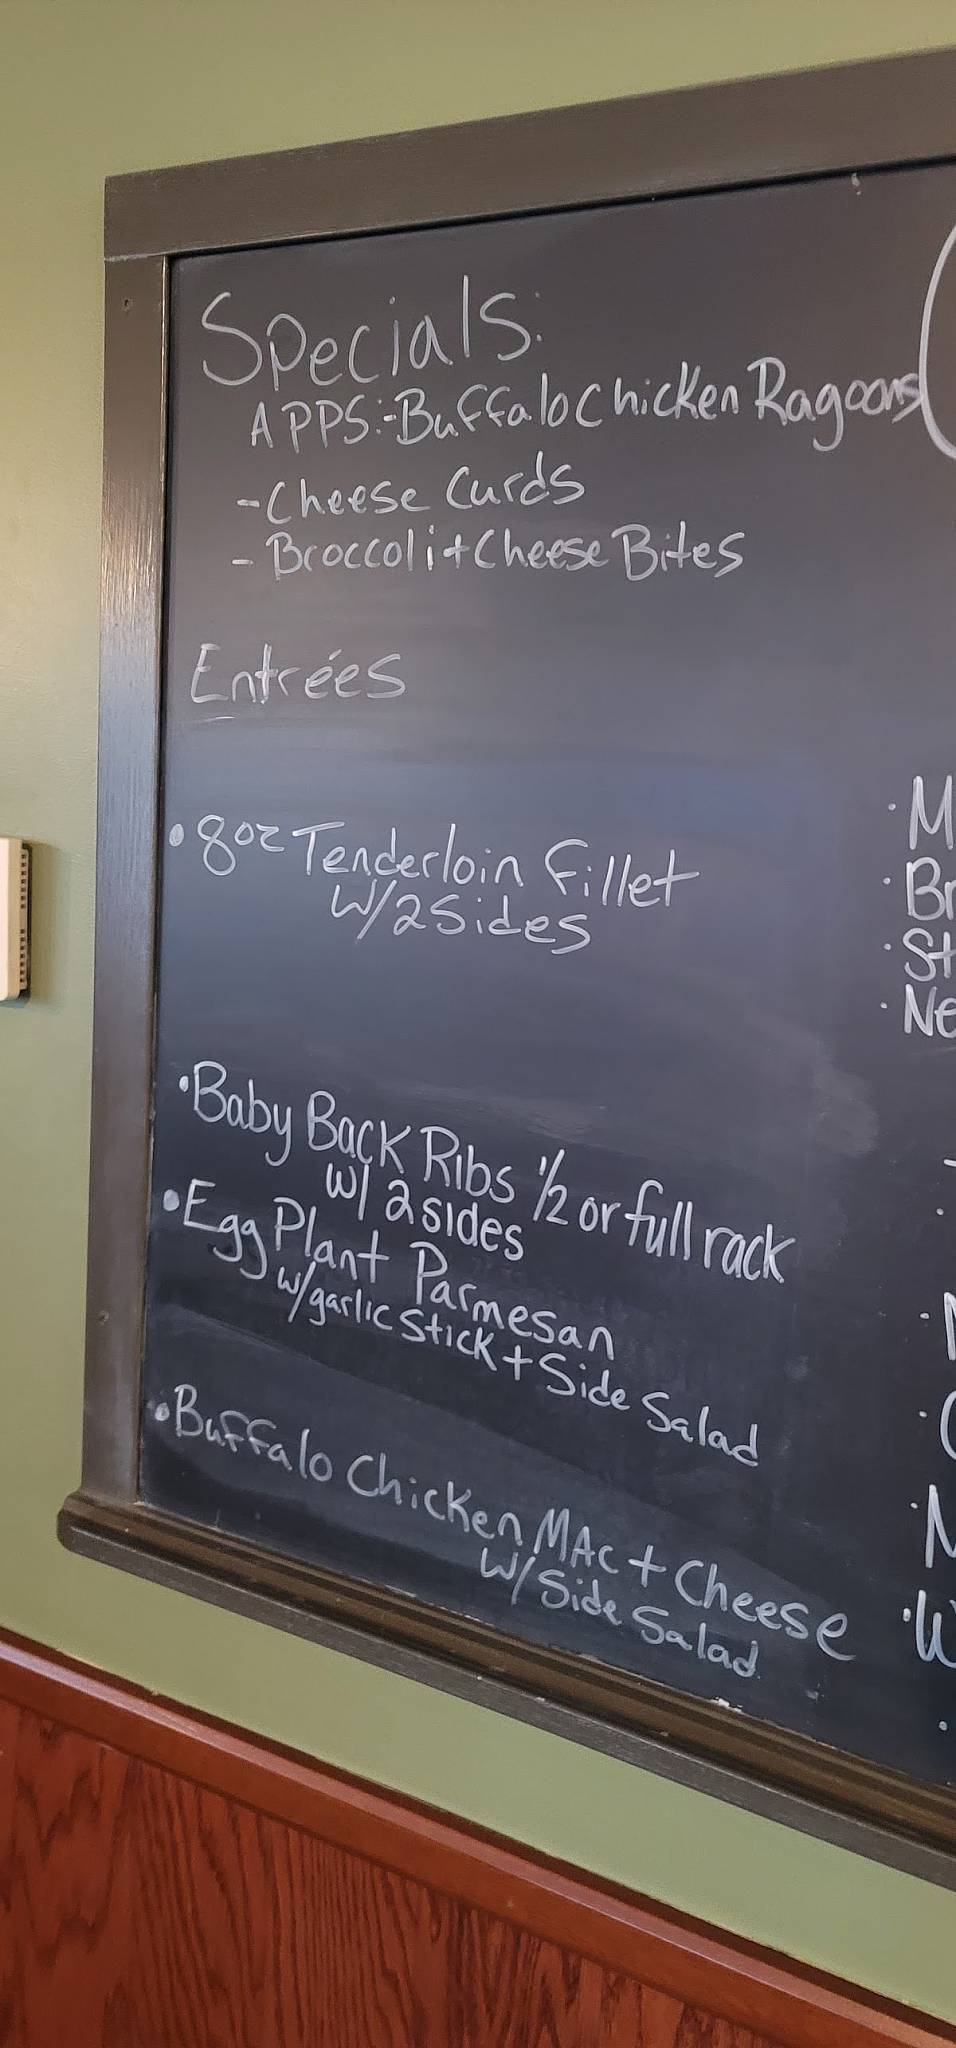 Specials:
APPS:-Buffalo Chicken Ragoons
-Cheese Curds
-Broccoli+Cheese Bites
Entrées
•8oz Tenderloin Fillet
W/2Sides
•Baby Back Ribs 1/2 or full rack
w/ 2 sides
•Egg Plant Parmesan
w/garlic stick + Side Salad
•Buffalo Chicken MAc + Cheese
W/Side Salad